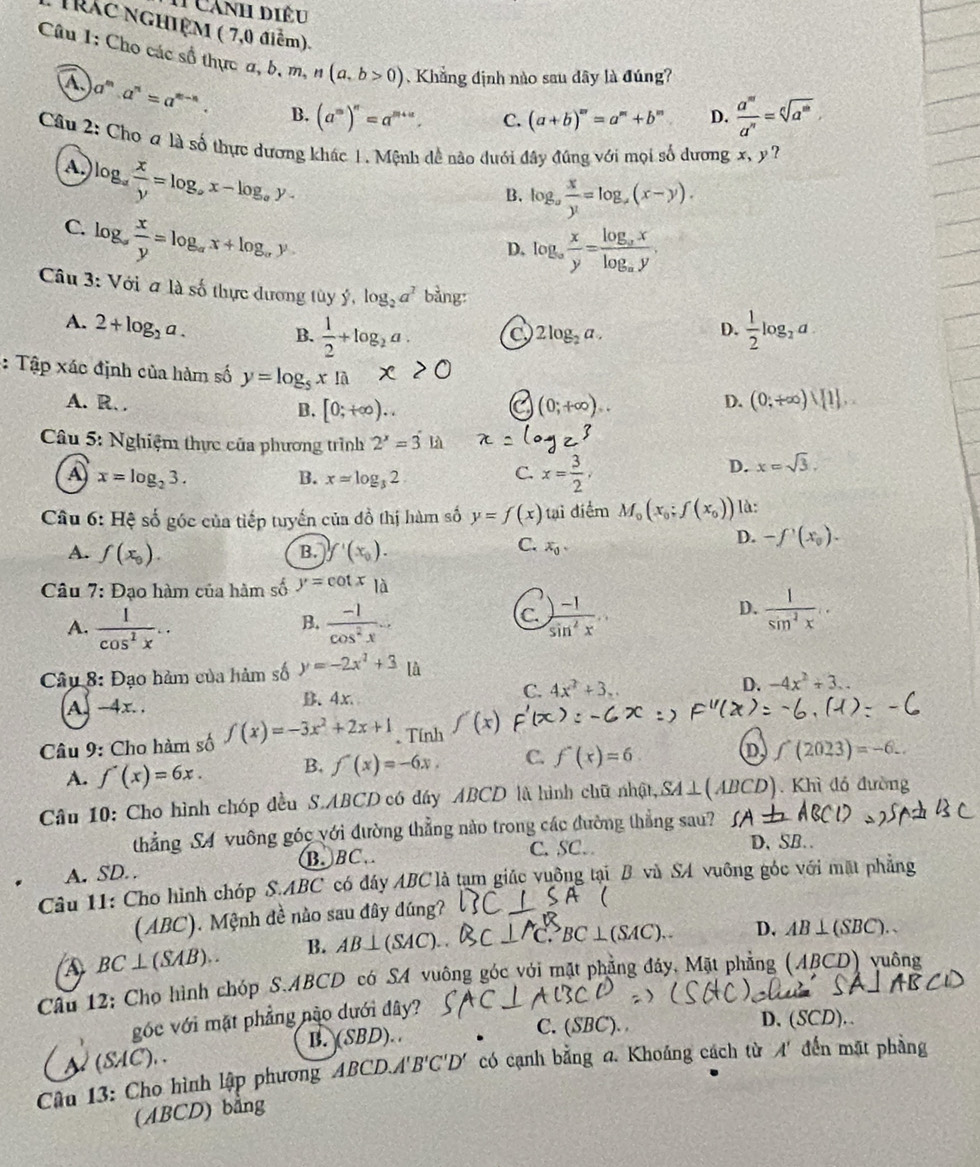 CÁNH DIỀU
TRẮC NGHIỆM ( 7,0 điểm).
Câu 1: Cho các số thực a, b, m, n (a, b > 0). Khẳng định nào sau đây là đúng?
A. a^m.a^n = a^{m-n}.
B. (a^m)^n = a^{m+n}.
C. (a+b)^m = a^m + b^m
D. \frac{a^m}{a^n} = \sqrt[n]{a^m}.
Câu 2: Cho a là số thực dương khác 1. Mệnh đề nào dưới đây đúng với mọi số dương x, y?
A. log_a \frac{x}{y} = log_a x - log_a y.
B. log_a \frac{x}{y} = log_a (x-y).
C. log_a \frac{x}{y} = log_a x + log_a y.
D. log_a \frac{x}{y} = \frac{log_a x}{log_a y}.
Câu 3: Với a là số thực dương tùy ý, log_2 a^2 bằng:
A. 2 + log_2 a.
B. \frac{1}{2} + log_2 a.
C. 2 log_2 a.
D. \frac{1}{2} log_2 a
: Tập xác định của hàm số y = log_5 x là x > 0
A. R. .
B. [0;+∞). .
C. (0;+∞). .
D. (0;+∞)\{1}. .
Câu 5: Nghiệm thực của phương trình 2^x = 3 là x = log2^3
A. x = log_2 3.
B. x = log_3 2
C. x = \frac{3}{2}.
D. x = √3.
Câu 6: Hệ số góc của tiếp tuyến của đồ thị hàm số y = f(x) tại điểm M_0(x_0; f(x_0)) là:
A. f(x_0).
B. f'(x_0).
C. x_0.
D. -f'(x_0).
Câu 7: Đạo hàm của hàm số y = cot x là
A. \frac{1}{cos^2 x}. .
B. \frac{-1}{cos^2 x}. .
C. \frac{-1}{sin^2 x}. .
D. \frac{1}{sin^2 x}. .
Câu 8: Đạo hàm của hàm số y = -2x^2 + 3 là
A. -4x. .
B. 4x.
C. 4x^2 + 3. .
D. -4x^2 + 3. .
Câu 9: Cho hàm số f(x) = -3x^2 + 2x + 1. Tính f''(x) F'(x) = -6x => F''(x) = -6.(1) = -6
A. f''(x) = 6x.
B. f''(x) = -6x.
C. f''(x) = 6
D. f''(2023) = -6. .
Câu 10: Cho hình chóp đều S.ABCD có đáy ABCD là hình chữ nhật, SA ⊥ (ABCD). Khi đó đường
thẳng SA vuông góc với đường thẳng nào trong các đường thẳng sau? SA ⊥ ABCD => SA ⊥ BC
A. SD. .
B. BC. .
C. SC. .
D. SB. .
Câu 11: Cho hình chóp S.ABC có đáy ABC là tam giác vuông tại B và SA vuông góc với mặt phẳng
(ABC). Mệnh đề nào sau đây đúng? BC ⊥ SA (
BC ⊥ AB
A. BC ⊥ (SAB). .
B. AB ⊥ (SAC). .
C. BC ⊥ (SAC). .
D. AB ⊥ (SBC). .
Câu 12: Cho hình chóp S.ABCD có SA vuông góc với mặt phẳng đáy. Mặt phẳng (ABCD) vuông
góc với mặt phẳng nào dưới đây? SAC ⊥ ABCD => (SAC) chứa SA ⊥ ABCD
A. (SAC). .
B. (SBD). .
C. (SBC). .
D. (SCD). .
Câu 13: Cho hình lập phương ABCD.A'B'C'D' có cạnh bằng a. Khoảng cách từ A' đến mặt phẳng
(ABCD) bằng